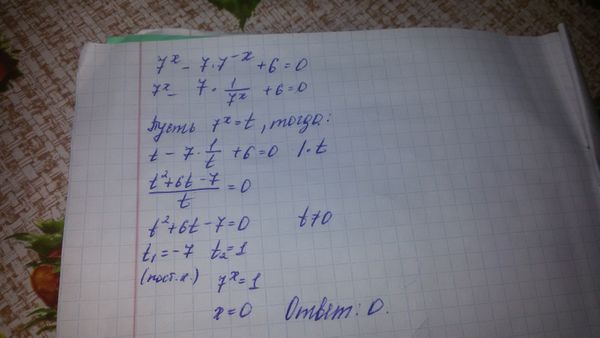 7^x - 7·7^-x + 6 = 0
7^x - 7 · 1/7^x + 6 = 0
Пусть 7^x = t, тогда:
t - 7 · 1/t + 6 = 0 |·t
(t² + 6t - 7)/t = 0
t² + 6t - 7 = 0 t ≠ 0
t₁ = -7 t₂ = 1
(пост.к.) 7^x = 1
x = 0 Ответ: 0.